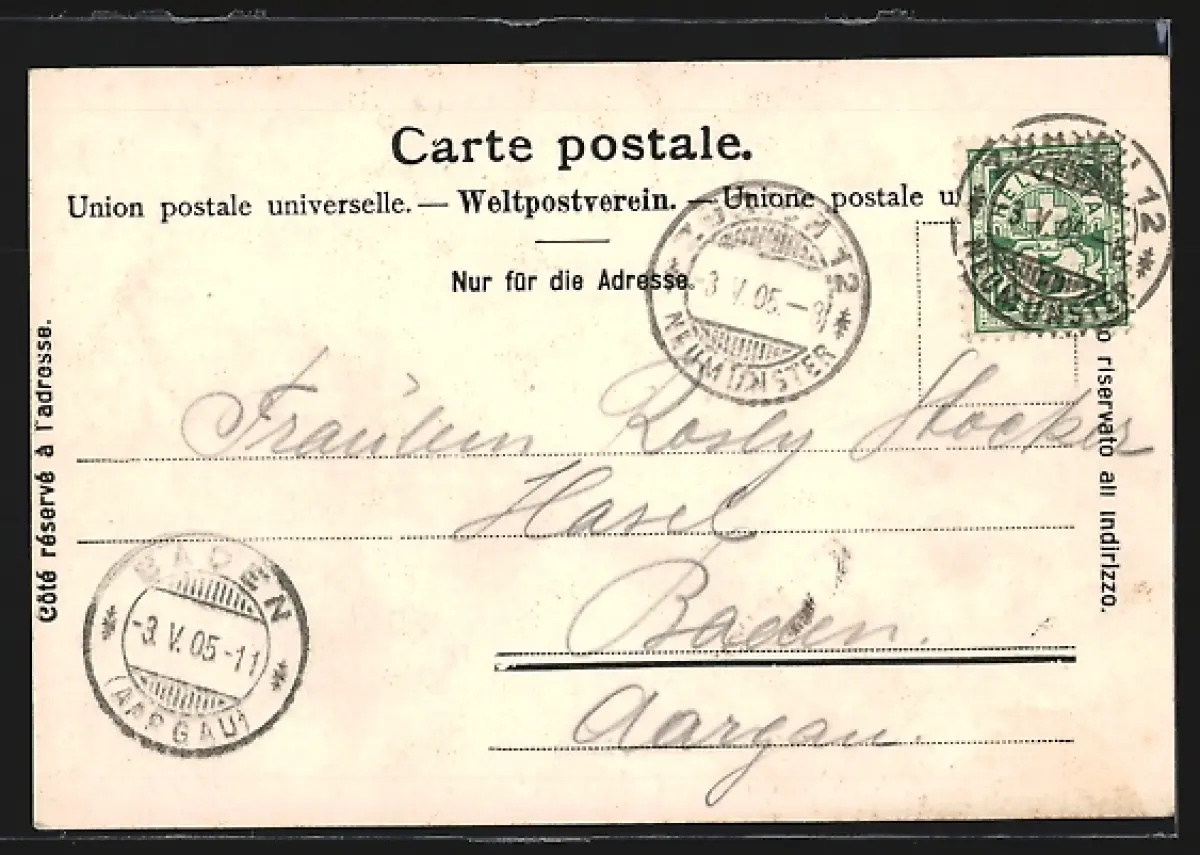 Carte postale.
Union postale universelle. — Weltpostverein. — Unione postale u
Nur für die Adresse.
Côté réservé à l'adresse.
o riservato all indirizzo.
HELVETIA
12
NEUMÜNSTER
12
-3.V.05.-8
NEUMÜNSTER
Fräulein Rosly Stocker
Hasel
Baden.
Aargau.
BADEN
-3.V.05-11
(AARGAU)